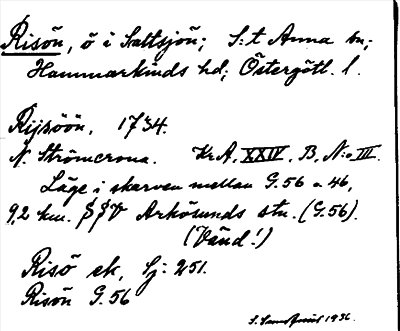 Risön, ö i Saltsjön; S:t Anna sn;
Hammarkinds hd; Östergötl. l.
Rijsöön, 1734.
N. Strömcrona. Kr.A, XXIV, B, N:o III.
Läge i skarven mellan G.56 o 46,
9,2 km. SSV Arkösunds stn. (G.56).
(Vänd!)
Risö ek, Sj: 251.
Risön G.56
1936.